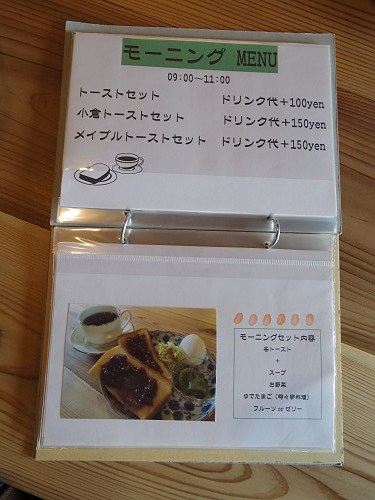 モーニング MENU
09:00～11:00
トーストセット ドリンク代＋100yen
小倉トーストセット ドリンク代＋150yen
メイプルトーストセット ドリンク代＋150yen
モーニングセット内容
各トースト
＋
スープ
お野菜
ゆでたまご（時々卵料理）
フルーツ or ゼリー